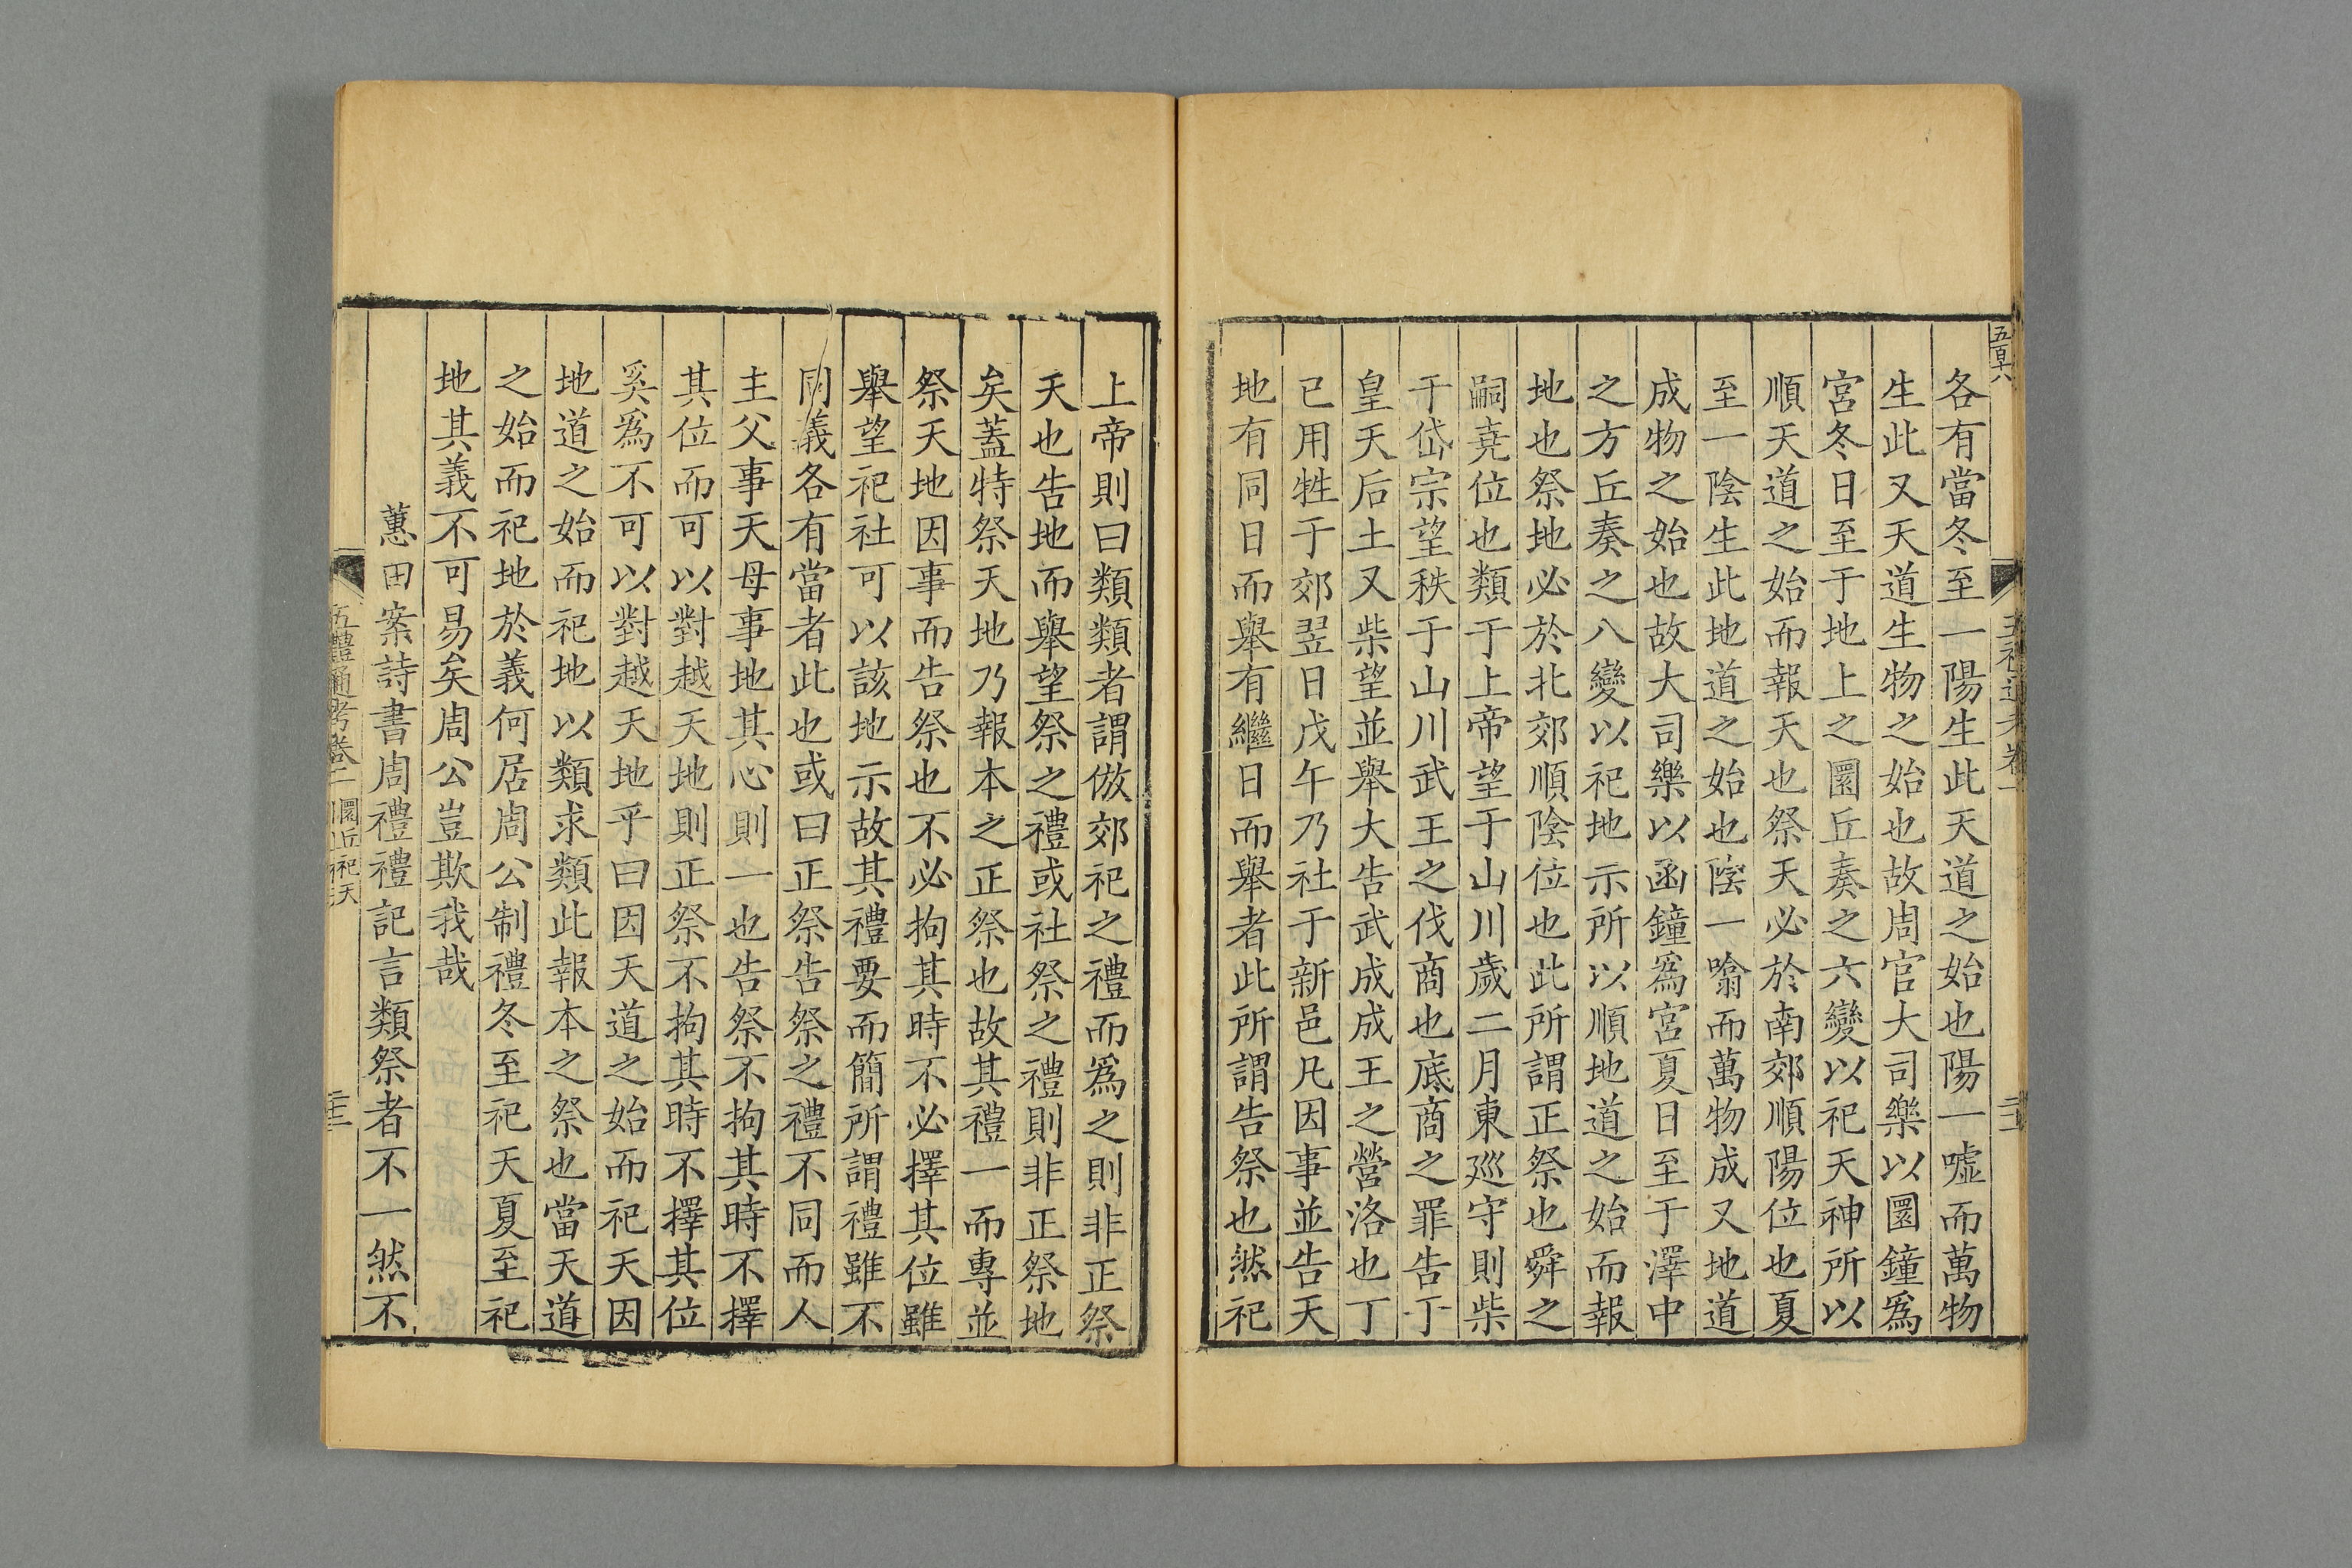 五百六
各有當冬至一陽生此天道之始也陽一噓而萬物
生此又天道生物之始也故周官大司樂以圜鐘爲
宮冬日至于地上之圜丘奏之六變以祀天神所以
順天道之始而報天也祭天必於南郊順陽位也夏
至一陰生此地道之始也陰一噏而萬物成又地道
成物之始也故大司樂以函鐘爲宮夏日至于澤中
之方丘奏之八變以祀地示所以順地道之始而報
地也祭地必於北郊順陰位也此所謂正祭也舜之
嗣堯位也類于上帝望于山川歲二月東廵守則柴
于岱宗望秩于山川武王之伐商也底商之罪告于
皇天后土又柴望並舉大告武成成王之營洛也丁
已用牲于郊翌日戊午乃社于新邑凡因事並告天
地有同日而舉有繼日而舉者此所謂告祭也然祀
上帝則曰類類者謂倣郊祀之禮而爲之則非正祭
天也告地而舉望祭之禮或社祭之禮則非正祭地
矣蓋特祭天地乃報本之正祭也故其禮一而專並
祭天地因事而告祭也不必拘其時不必擇其位雖
舉望祀社可以該地示故其禮要而簡所謂禮雖不
同義各有當者此也或曰正祭告祭之禮不同而人
主父事天母事地其心則一也告祭不拘其時不擇
其位而可以對越天地則正祭不拘其時不擇其位
奚爲不可以對越天地乎曰因天道之始而祀天因
地道之始而祀地以類求類此報本之祭也當天道
之始而祀地於義何居周公制禮冬至祀天夏至祀
地其義不可易矣周公豈欺我哉
蕙田案詩書周禮禮記言類祭者不一然不
五禮通考卷二 圜丘祀天